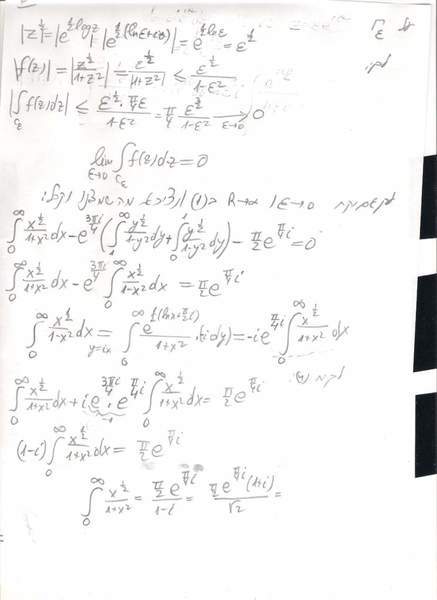 |z^{1/2}| = |e^{1/2 log z}| = |e^{1/2(ln ε + iα)}| = e^{1/2 ln ε} = ε^{1/2}   Γ_ε על
|f(z)| = |z^{1/2}/(1+z²)| = ε^{1/2}/|1+z²| ≤ ε^{1/2}/(1-ε²)   לכן:
|∫_{C_ε} f(z)dz| ≤ (ε^{1/2} · π/4 ε)/(1-ε²) = π/4 ε^{3/2}/(1-ε²) →_{ε→0} 0
lim_{ε→0} ∫_{C_ε} f(z)dz = 0
R→∞ ε→0 ב(1) ונציב את מה שמצאנו ונקבל:
∫_0^∞ x^{1/2}/(1+x²) dx - e^{3πi/4} (∫_1^∞ y^{1/2}/(1-y²) dy + ∫_0^1 y^{1/2}/(1-y²) dy) - π/2 e^{π/4 i} = 0
∫_0^∞ x^{1/2}/(1+x²) dx - e^{3πi/4} ∫_0^∞ x^{1/2}/(1-x²) dx = π/2 e^{π/4 i}
∫_0^∞ x^{1/2}/(1-x²) dx =_{y=ix} ∫_0^∞ e^{1/2(ln x + π/2 i)}/(1+x²) · (-i dy) = -i e^{π/4 i} ∫_0^∞ x^{1/2}/(1+x²) dx
∫_0^∞ x^{1/2}/(1+x²) dx + i e^{3πi/4} · e^{π/4 i} ∫_0^∞ x^{1/2}/(1+x²) dx = π/2 e^{π/4 i}
(1-i) ∫_0^∞ x^{1/2}/(1+x²) dx = π/2 e^{π/4 i}
∫_0^∞ x^{1/2}/(1+x²) = π/2 e^{π/4 i}/(1-i) = π/2 e^{π/4 i}(1+i)/√2 =